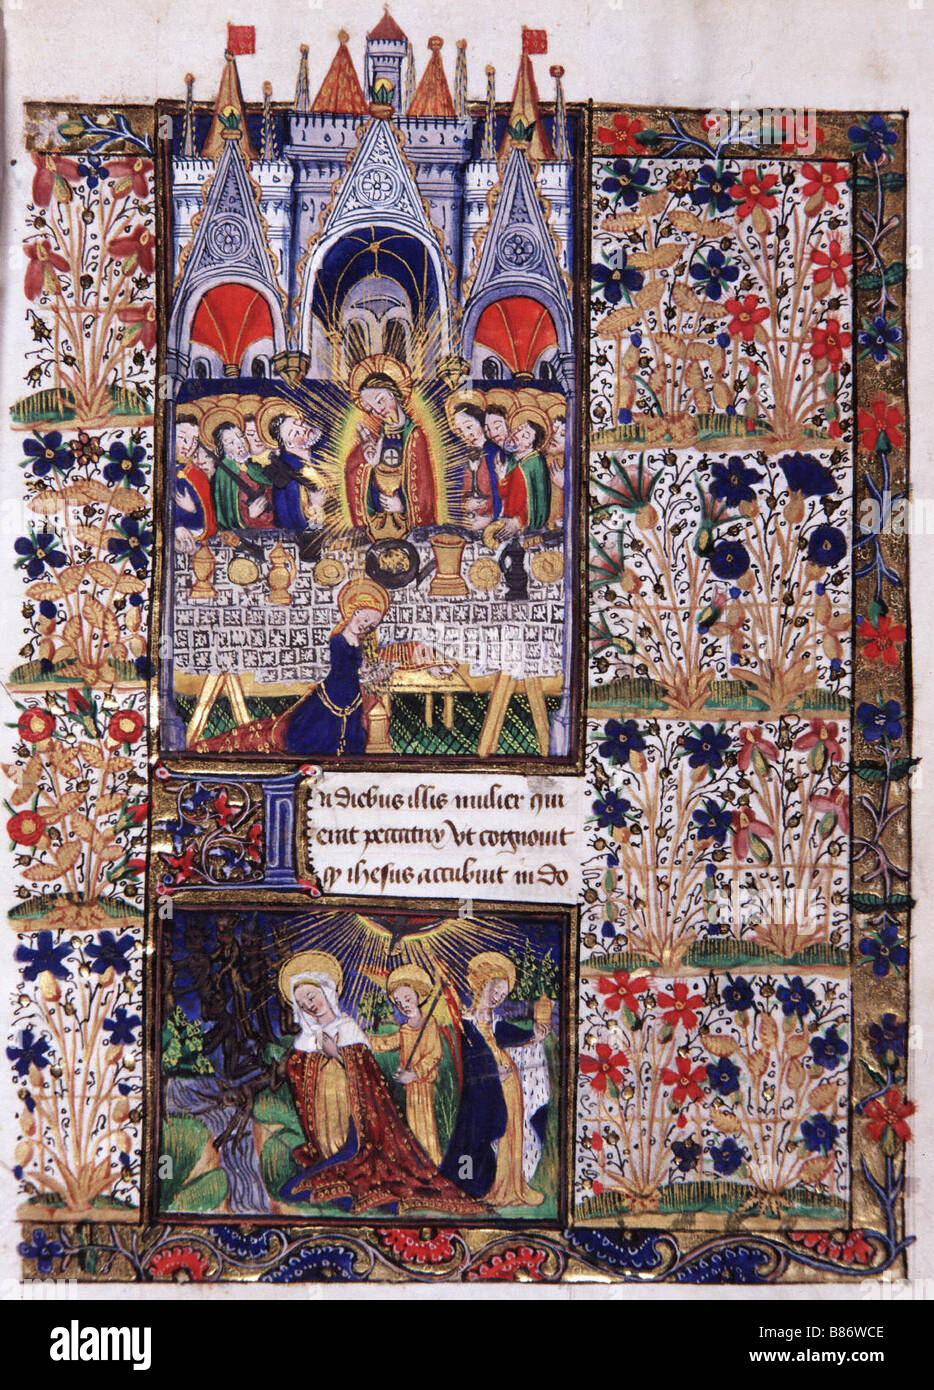 In diebus illis mulier que
erat peccatrix Vt cognouit
qꝫ ihesus accubuit in do
alamy
Image ID: B86WCE
www.alamy.com